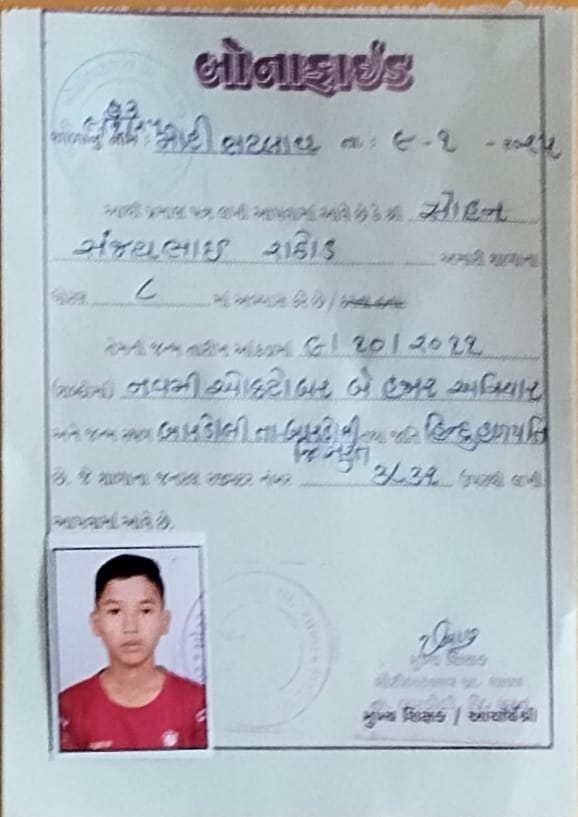 બોનાફાઇડ
શાળાનું નામ : મોટી ભટલાવ તા : ૯-૧ -૨૦૨૫
આથી પ્રમાણ પત્ર લખી આપવામાં આવે છે કે શ્રી રોહન
સંજયભાઇ રાઠોડ અમારી શાળાના
ધોરણ ૮ માં અભ્યાસ કરે છે /
તેમની જન્મ તારીખ આંકડામાં ૯ / ૧૦ / ૨૦૧૧
(શબ્દોમાં) નવમી ઓકટોબર બે હજાર અગિયાર
અને જન્મ સ્થળ બારડોલી તા બારડોલી તથા જાતિ હિન્દુ હળપતિ
જિ સુરત
છે. જે શાળાના જનરલ રજીસ્ટર નંબર ૩૮૩૧ ઉપરથી લખી
આપવામાં આવે છે.
મુખ્ય શિક્ષક
મુખ્ય શિક્ષક / આચાર્યશ્રી